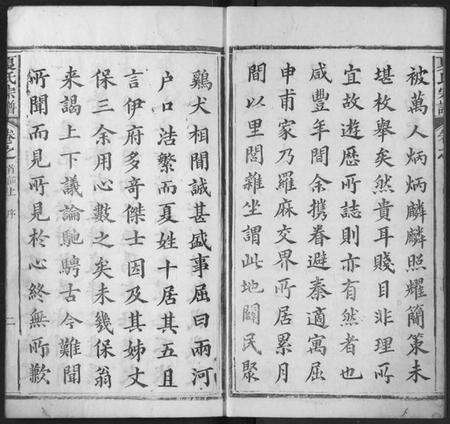 被萬人炳炳麟麟照耀簡策未
堪枚舉矣然貴耳賤目非理所
宜故遊歷所誌則亦有然者也
咸豐年間余携眷避秦適寓屈
申甫家乃羅麻交界所居累月
間以里閭雜坐謂此地闢民聚
雞犬相聞誠甚盛事屈曰兩河
户口浩繁而夏姓十居其五且
言伊府多奇傑士因及其姊丈
保三余用心數之矣未幾保翁
来謁上下議論馳騁古今難聞
所聞而見所見於心終無所歉
夏氏宗譜
卷之一
序